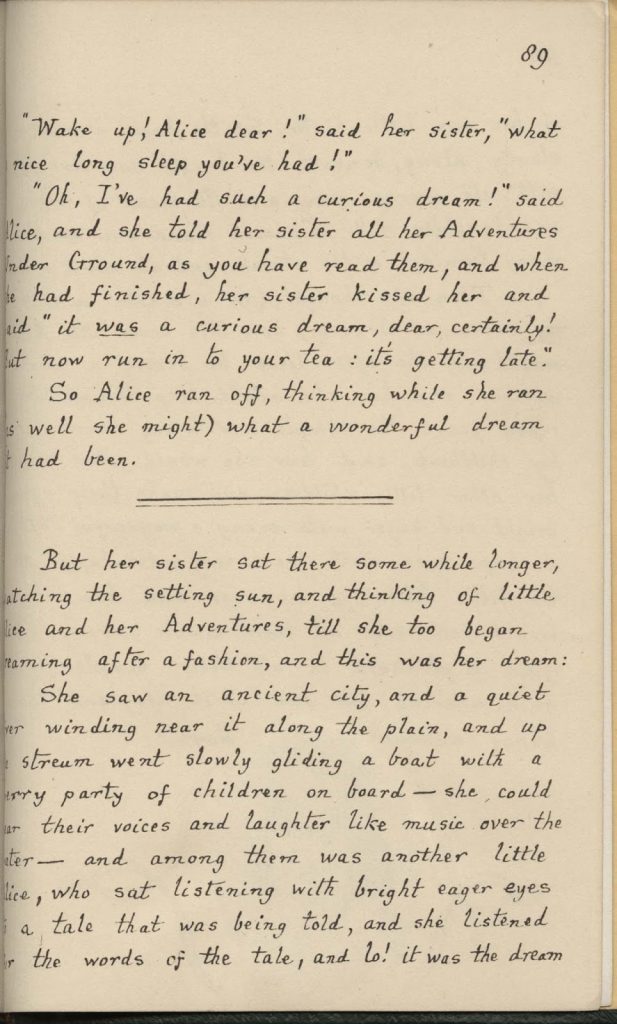 89
"Wake up! Alice dear!" said her sister, "what
nice long sleep you've had!"
"Oh, I've had such a curious dream!" said
lice, and she told her sister all her Adventures
nder Ground, as you have read them, and when
he had finished, her sister kissed her and
aid "it was a curious dream, dear, certainly!
ut now run in to your tea: it's getting late."
So Alice ran off, thinking while she ran
s well she might) what a wonderful dream
t had been.
But her sister sat there some while longer,
atching the setting sun, and thinking of little
lice and her Adventures, till she too began
reaming after a fashion, and this was her dream:
She saw an ancient city, and a quiet
ver winding near it along the plain, and up
e stream went slowly gliding a boat with a
erry party of children on board — she could
ear their voices and laughter like music over the
ater — and among them was another little
lice, who sat listening with bright eager eyes
a tale that was being told, and she listened
r the words of the tale, and lo! it was the dream